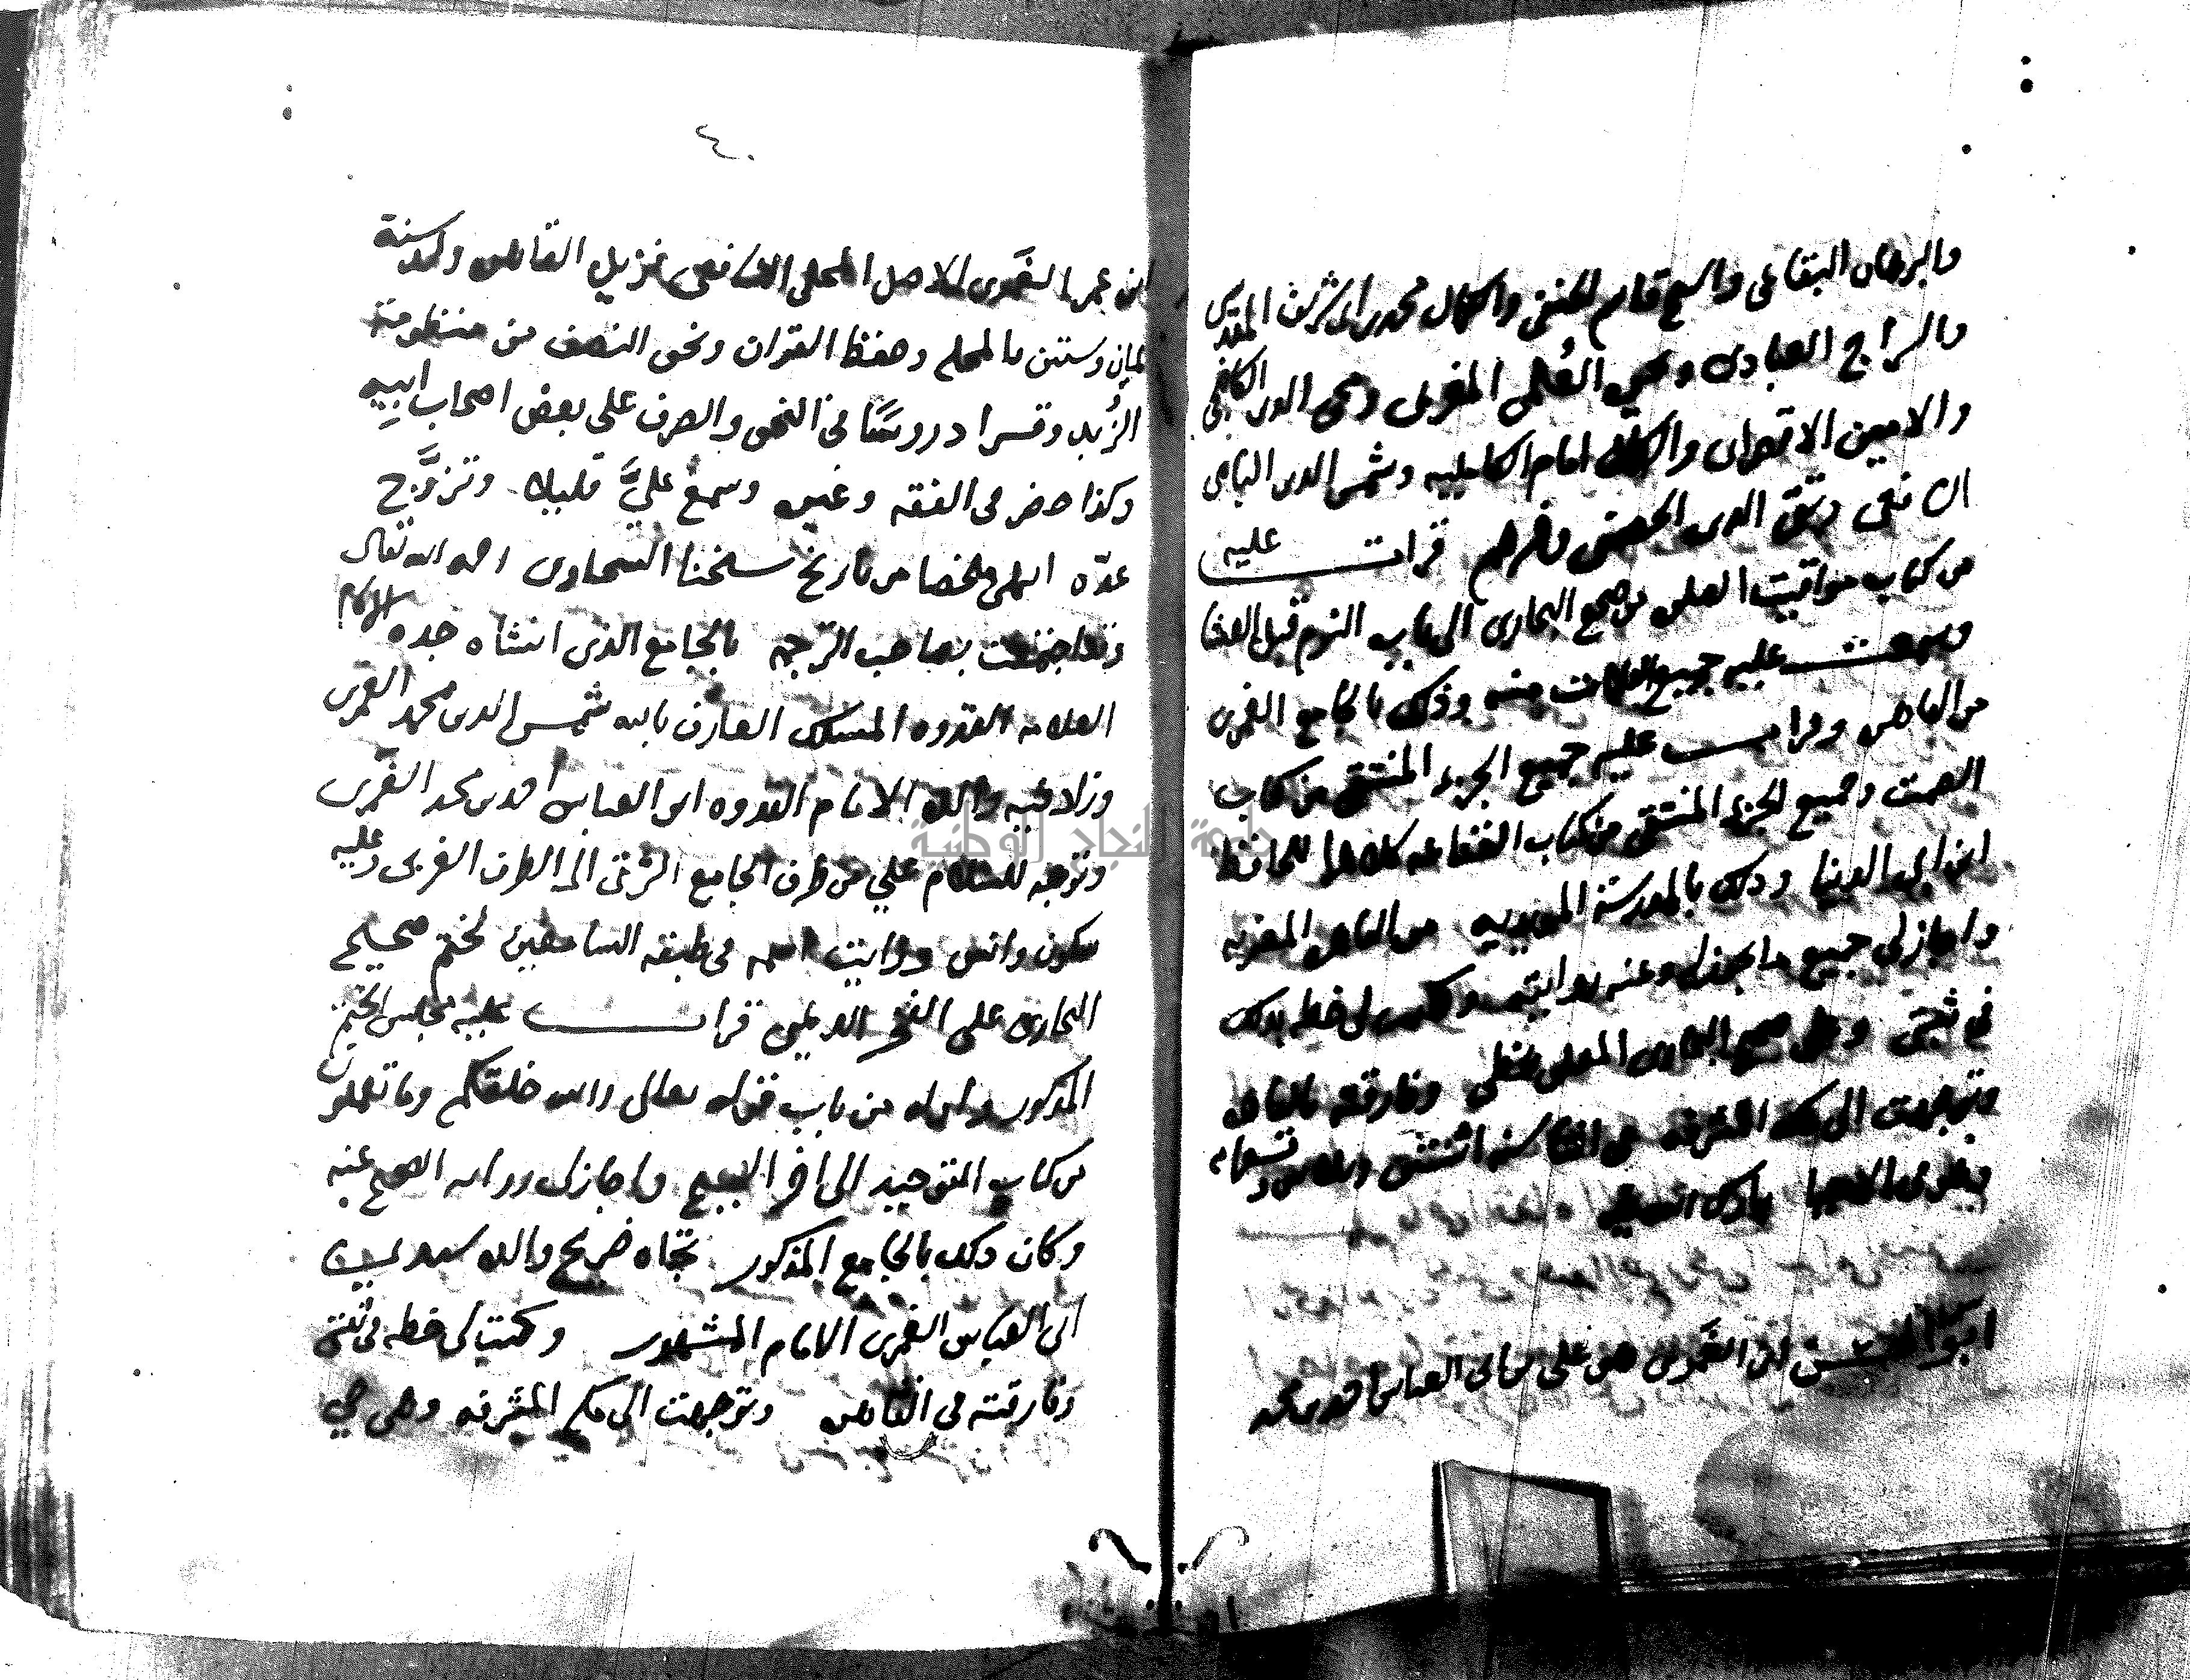 والبرهان البقاعي والشيخ قاسم الحنفي والكمال محمد بن ابي شريف المقدسي
والسراج العبادي ويحيى العُلمي المغربي ومحيي الدين الكافيجي
والامين الاقصراي والكمال امام الكامليه وشمس الدين البامي
الشافعي وتقي الدين الحصني وغيرهم قرات عليه
من كتاب مواقيت الصلاه من صحيح البخاري الى باب النوم قبل العشا
وسمعت عليه جميع منه وذلك بالجامع الغمري
من القاهره وقرات عليه جميع الجزء المنتقى من كتاب
الصمت وجميع الجزء المنتقى من كتاب القناعه كلاهما للحافظ
ابن ابي الدنيا وذلك بالمدرسة المويديه من القاهره المعزيه
واجاز لي جميع ما يجوز له وعنه روايته وكتب لي خطه بذلك
في ثبتي وعلى صحيح البخاري بخطي وفارقته بالقاهره
وتوجهت الى مكه المشرفه في سنه اثنتين وتسعمايه
ابو الحسن ابن الغَمري هو علي بن ابي العباس احمد بن محمد
٤٠
ابن عمر الغَمري الاصل المحلي الشافعي نزيل القاهره ولد سنة
ثمان وستين بالمحله وحفظ القران ونحو النصف من منظومة
الزُبد وقرا دروسًا في النحو والصرف على بعض اصحاب ابيهِ
وكذا حضر في الفقه وغيره وسمع عليَّ قليلا وتزوَّج
عدّه انتهى ملخصا من تاريخ شيخنا السخاوي رحمه الله تعالى
وقد اجتمعت بصاحب الترجمه بالجامع الذي انشاه جده الامام
العلامه القدوه المسلك العارف بالله شمس الدين محمد الغمري
والده الامام القدوه ابو العباس احمد بن محمد الغَمري
وتوجه للسلام علي من طرف الجامع الشرقي الى الطرف الغربي وعليه
سكون وانس ورايت اسمه في طبقه السامعين لختم صحيح
البخاري على الفخر الديلمي قرات عليه مجلس الختم
المذكور من باب قوله تعالى والله خلقكم وما تعملون
من كتاب التوحيد الى اخر الصحيح واجاز لي روايه الصحيح عنه
وكان ذلك بالجامع المذكور تجاه ضريح والده سيدي
ابي العباس الغمري الامام المشهور وكتب لي خطه في ثبتي
وفارقته في القاهره وتوجهت الى مكه المشرفه وهو حي